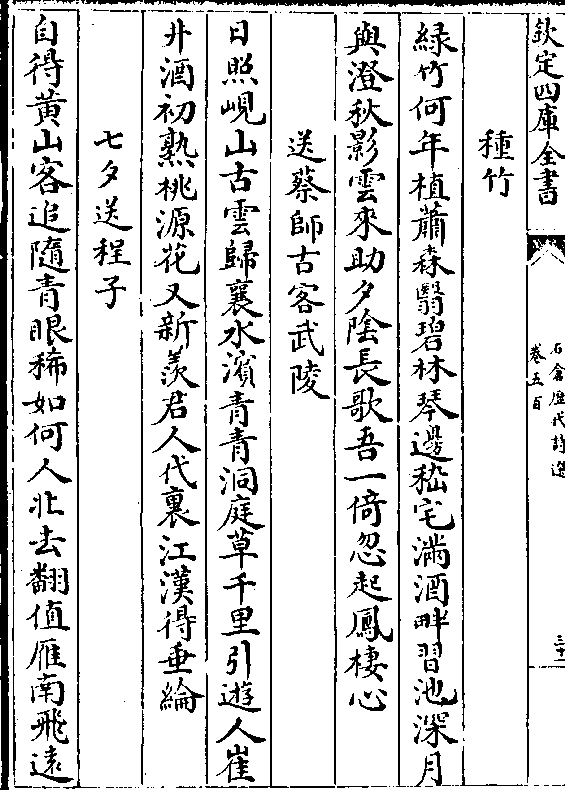 欽定四庫全書
石倉歷代詩選
卷五百
三十二
種竹
綠竹何年植蕭森翳碧林琴邊嵇宅滿酒畔習池深月
與澄秋影雲來助夕陰長歌吾一倚忽起鳳棲心
送蔡師古客武陵
日照峴山古雲歸襄水濱青青洞庭草千里引遊人崔
井酒初熟桃源花又新羨君人代裏江漢得垂綸
七夕送程子
自得黃山客追隨青眼稀如何人北去翻值雁南飛遠